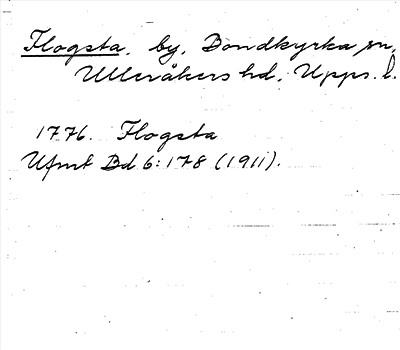 Flogsta, by, Bondkyrka sn,
Ulleråkers hd, Upps. l.
1776. Flogsta
Ufmt Bd 6: 178 (1911).